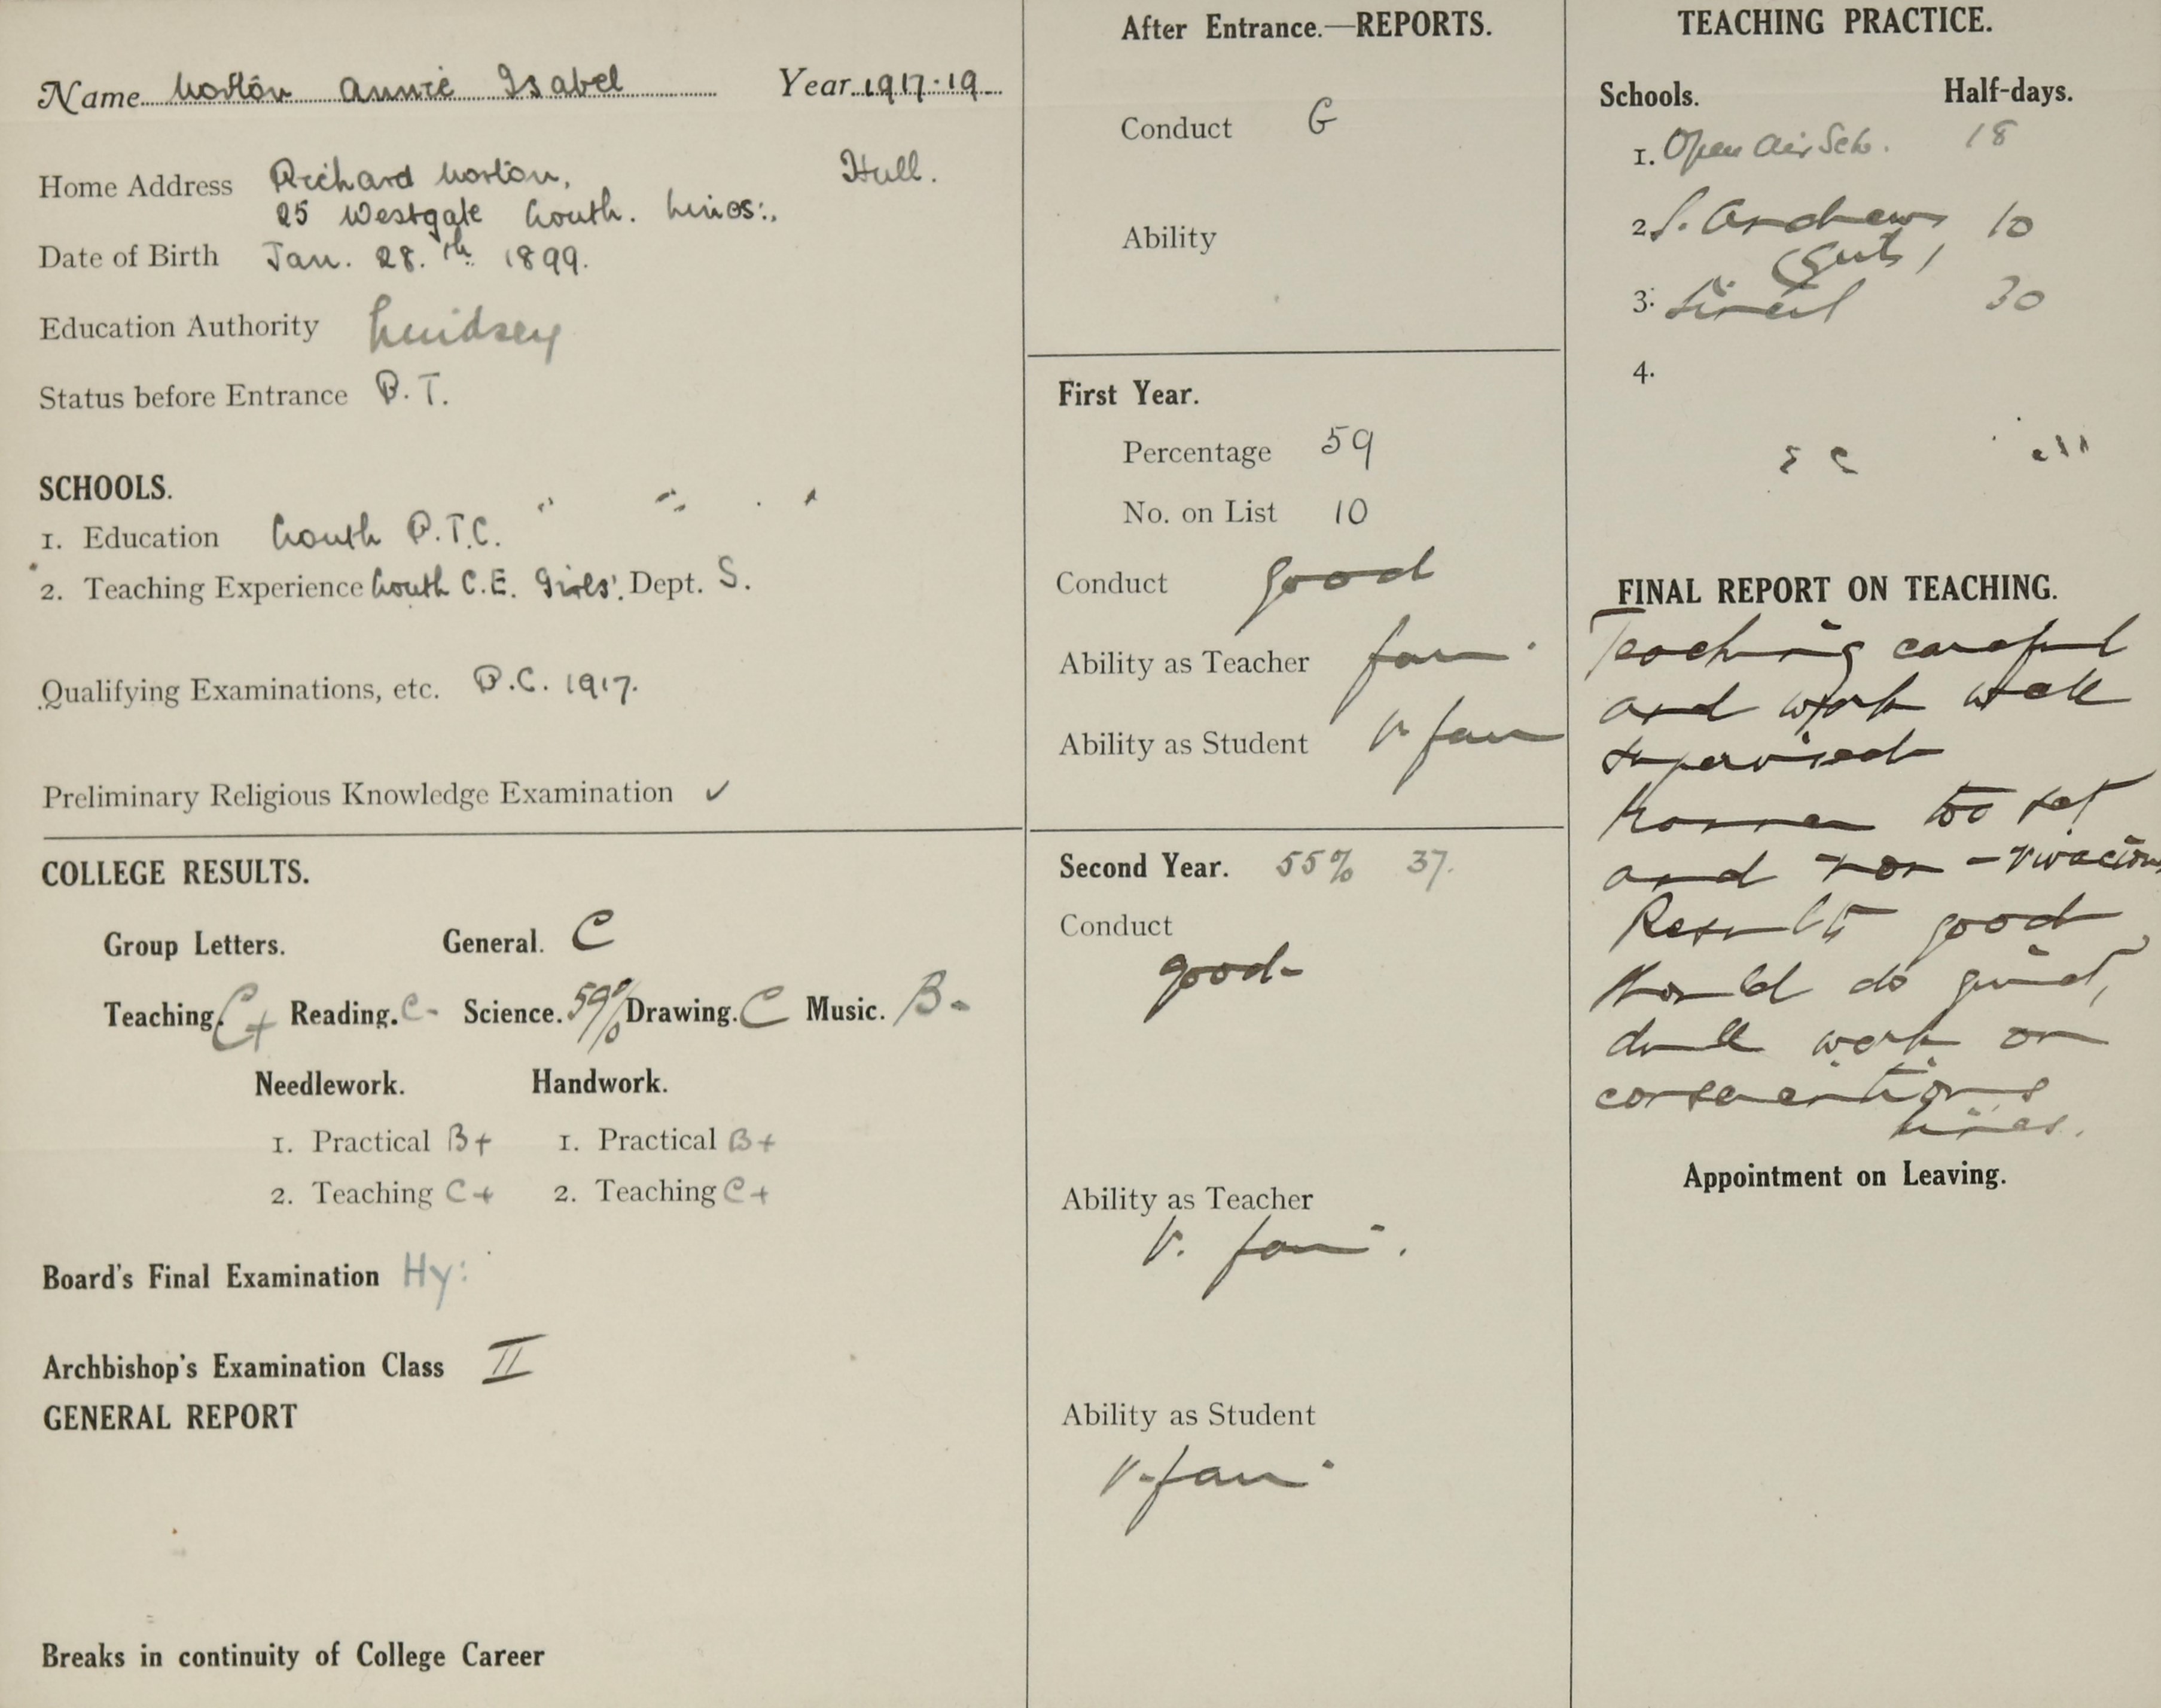 Name Norton Annie Isabel Year 1917-19
Home Address Richard Norton, Hull.
25 Westgate Louth. Lincs:.
Date of Birth Jan. 28.th 1899.
Education Authority Lindsey
Status before Entrance P.T.
SCHOOLS.
1. Education Louth P.T.C.
2. Teaching Experience Louth C.E. Girls'. Dept. S.
Qualifying Examinations, etc. P.C. 1917.
Preliminary Religious Knowledge Examination ✓
COLLEGE RESULTS.
Group Letters. General. C
Teaching. C+ Reading. C- Science. 59% Drawing. C Music. B-
Needlework. Handwork.
1. Practical B+ 1. Practical B+
2. Teaching C+ 2. Teaching C+
Board's Final Examination Hy:
Archbishop's Examination Class II
GENERAL REPORT
Breaks in continuity of College Career
After Entrance.—REPORTS.
Conduct G
Ability
First Year.
Percentage 59
No. on List 10
Conduct good
Ability as Teacher fair.
Ability as Student v. fair
Second Year. 55% 37.
Conduct
good-
Ability as Teacher
v. fair.
Ability as Student
v. fair
TEACHING PRACTICE.
Schools. Half-days.
1. Open Air Sch. 18
2. S. Andrews 10
3.  30
4.
FINAL REPORT ON TEACHING.
Teaching careful
and work well
supervised
Manner too set
and non-vivacious
Results good
Should do good,
dull work on
conscientious
lines.
Appointment on Leaving.